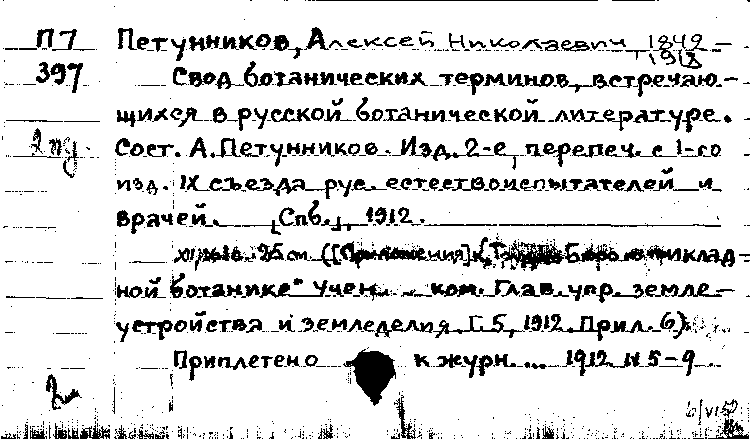 П7 Петунников, Алексей Николаевич 1842–
1918
397 Свод ботанических терминов, встречаю-
щихся в русской ботанической литературе.
Сост. А. Петунников. Изд. 2-е, перепеч. с 1-го
изд. IX съезда рус. естествоиспытателей и
врачей. [Спб.], 1912.
25 см ([Приложения] к Бюро приклад-
ной ботанике" Учен. .. ком. Глав. упр. земле-
устройства и земледелия. Т. 5, 1912. Прил. 6)
Приплетено к журн. ... 1912 N 5–9